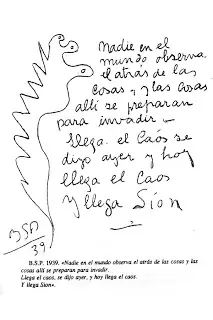 Nadie en el
mundo observa
el atrás de las
cosas, y las cosas
allí se preparan
para invadir -
llega. el Caos se
dijo ayer y hoy
llega el Caos
y llega Sion
BSP
39
B.S.P. 1939. «Nadie en el mundo observa el atrás de las cosas y las
cosas allí se preparan para invadir.
Llega el caos, se dijo ayer, y hoy llega el caos.
Y llega Sion».